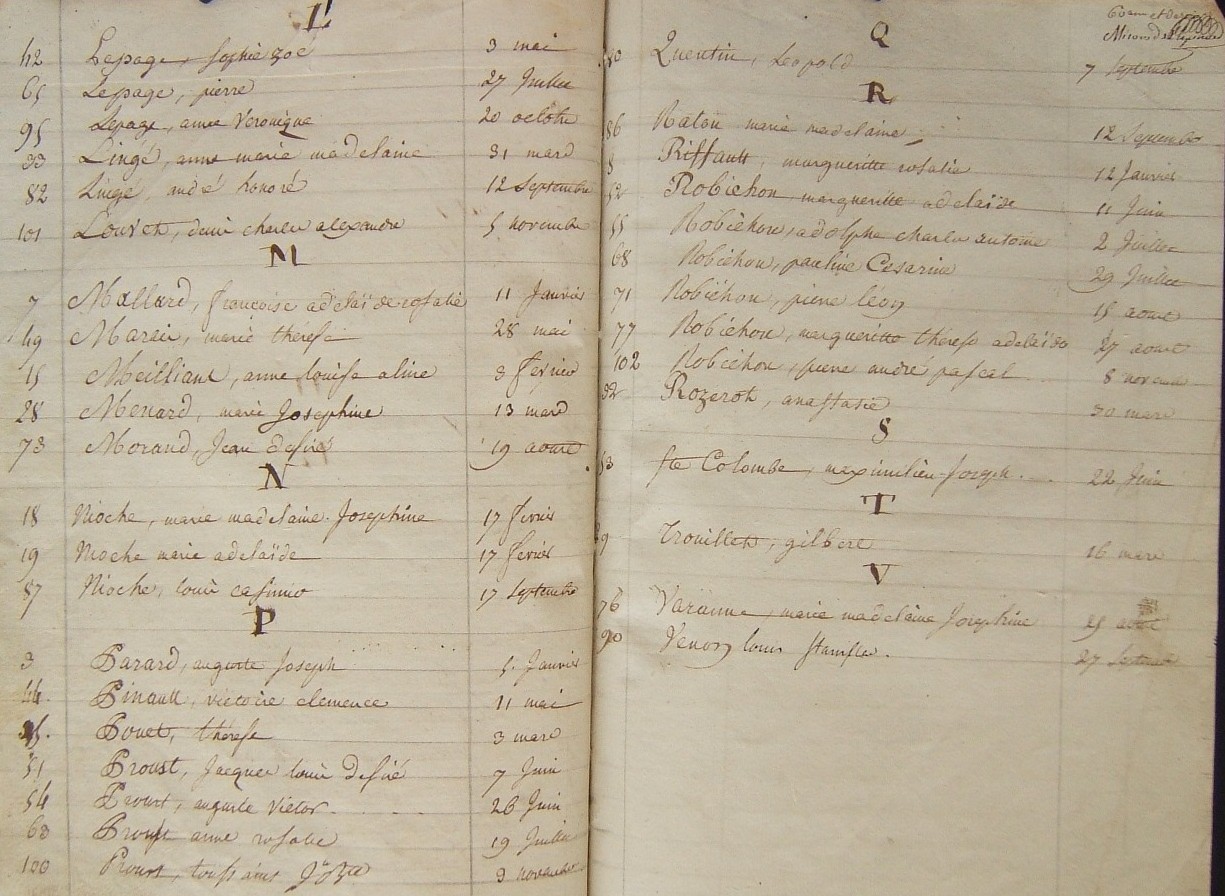 L
42 Lepage, Sophie zoé 3 mai
65 Lepage, pierre 27 Juillet
95 Lepage, aimée Veronique 20 octobre
33 Lingé, anne marie madelaine 31 mard
82 Lingé, andré honoré 12 Septembre
101 Louvet, denis charles alexandre 5 novembre
M
7 Mallard, françoise adelaïde rosalie 11 Janvier
49 Marais, marie thérèse 28 mai
15 Meilliant, anne louise aline 3 février
28 Menard, marie Josephine 13 mard
73 Morand, Jean désiré 19 aout
N
18 Nioche, marie madelaine Josephine 17 février
19 Nioche marie adelaïde 17 février
87 Nioche, louis casimir 17 Septembre
P
3 Parard, auguste Joseph 5 Janvier
44 Pinault, victoire clemence 11 mai
Pouet, thérèse 3 mard
51 Proust, Jacques louis désiré 7 Juin
54 Proust, auguste Victor 26 Juin
63 Proust anne rosalie 19 Juillet
100 Proust, toussaint 3 novembre
Q
80 Quentin, Leopold 7 Septembre
R
86 Raton marie madelaine 12 Septembre
8 Riffault, margueritte rosalie 12 Janvier
52 Robichon margueritte adelaïde 11 Juin
55 Robichon, adolphe charles antoine 2 Juillet
68 Robichon, pauline Cesarine 29 Juillet
71 Robichon, pierre léon 15 aout
77 Robichon, margueritte thérèse adelaïde 27 aout
102 Robichon, pierre andré pascal 8 novembre
32 Rozerot, anastasie 30 mars
S
53 Ste Colombe, maximilien-Joseph 22 Juin
T
29 Trouillet, gilbert 16 mars
V
76 Varenne, marie madelaine Josephine 25 aout
90 Venon louis 27 Septembre